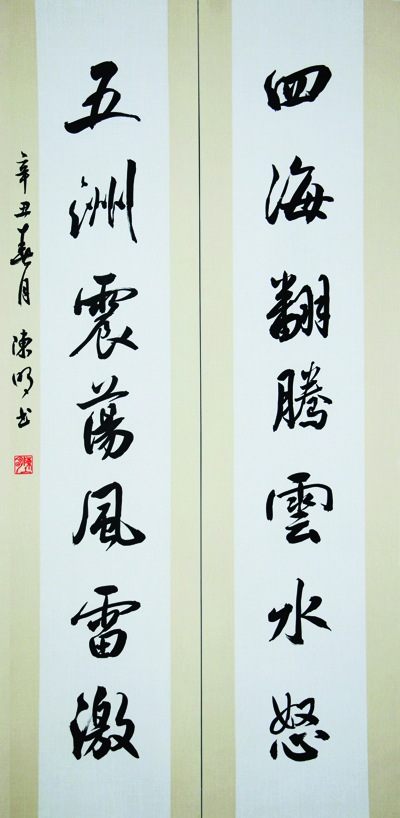 四海翻騰雲水怒
五洲震蕩風雷激
辛丑春月 陳明书